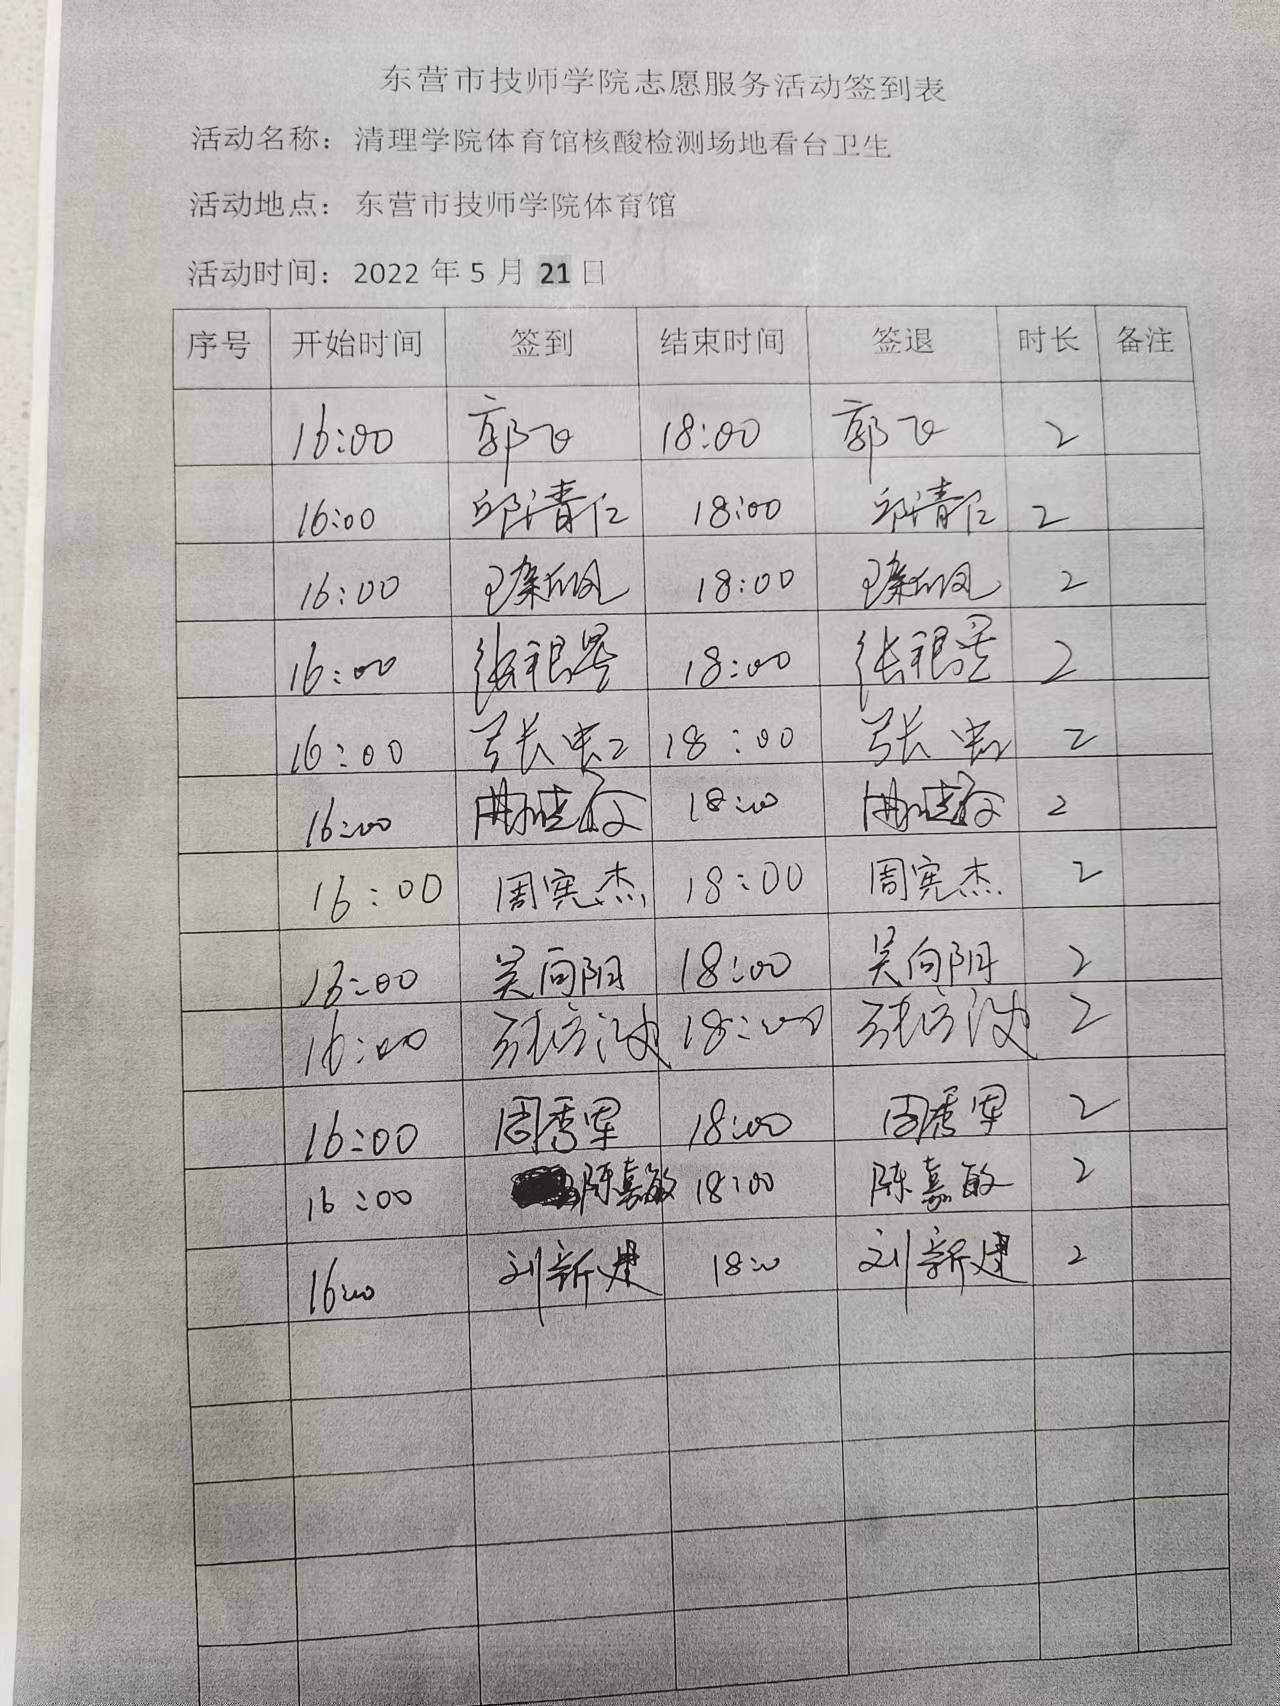 东营市技师学院志愿服务活动签到表
活动名称：清理学院体育馆核酸检测场地看台卫生
活动地点：东营市技师学院体育馆
活动时间：2022 年 5 月 21 日
序号 开始时间 签到 结束时间 签退 时长 备注
16:00 郭飞 18:00 郭飞 2
16:00 邱清仁 18:00 邱清仁 2
16:00 18:00 2
16:00 张银星 18:00 张银星 2
16:00 张忠 18:00 张忠 2
16:00 18:00 2
16:00 周宪杰 18:00 周宪杰 2
16:00 吴向阳 18:00 吴向阳 2
16:00 18:00 2
16:00 周秀军 18:00 周秀军 2
16:00 陈嘉敏 18:00 陈嘉敏 2
16:00 刘新建 18:00 刘新建 2